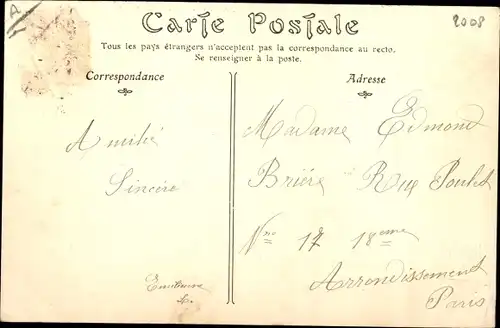 A
2008
Carte Postale
Tous les pays étrangers n'acceptent pas la correspondance au recto.
Se renseigner à la poste.
Correspondance
Amitié
Sincère
Adresse
Madame Edmond
Brière Rue
Nro 17 18eme
Arrondissement
Paris